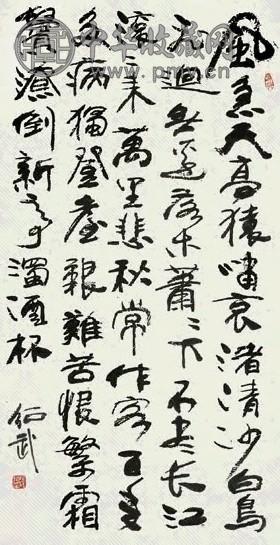 中华收藏网
風急天高猿嘯哀渚清沙白鳥
飛迴無邊落木蕭〻下不盡長江
滾〻来萬里悲秋常作客百年
多病獨登臺艱難苦恨繁霜
鬢潦倒新亭濁酒杯
武